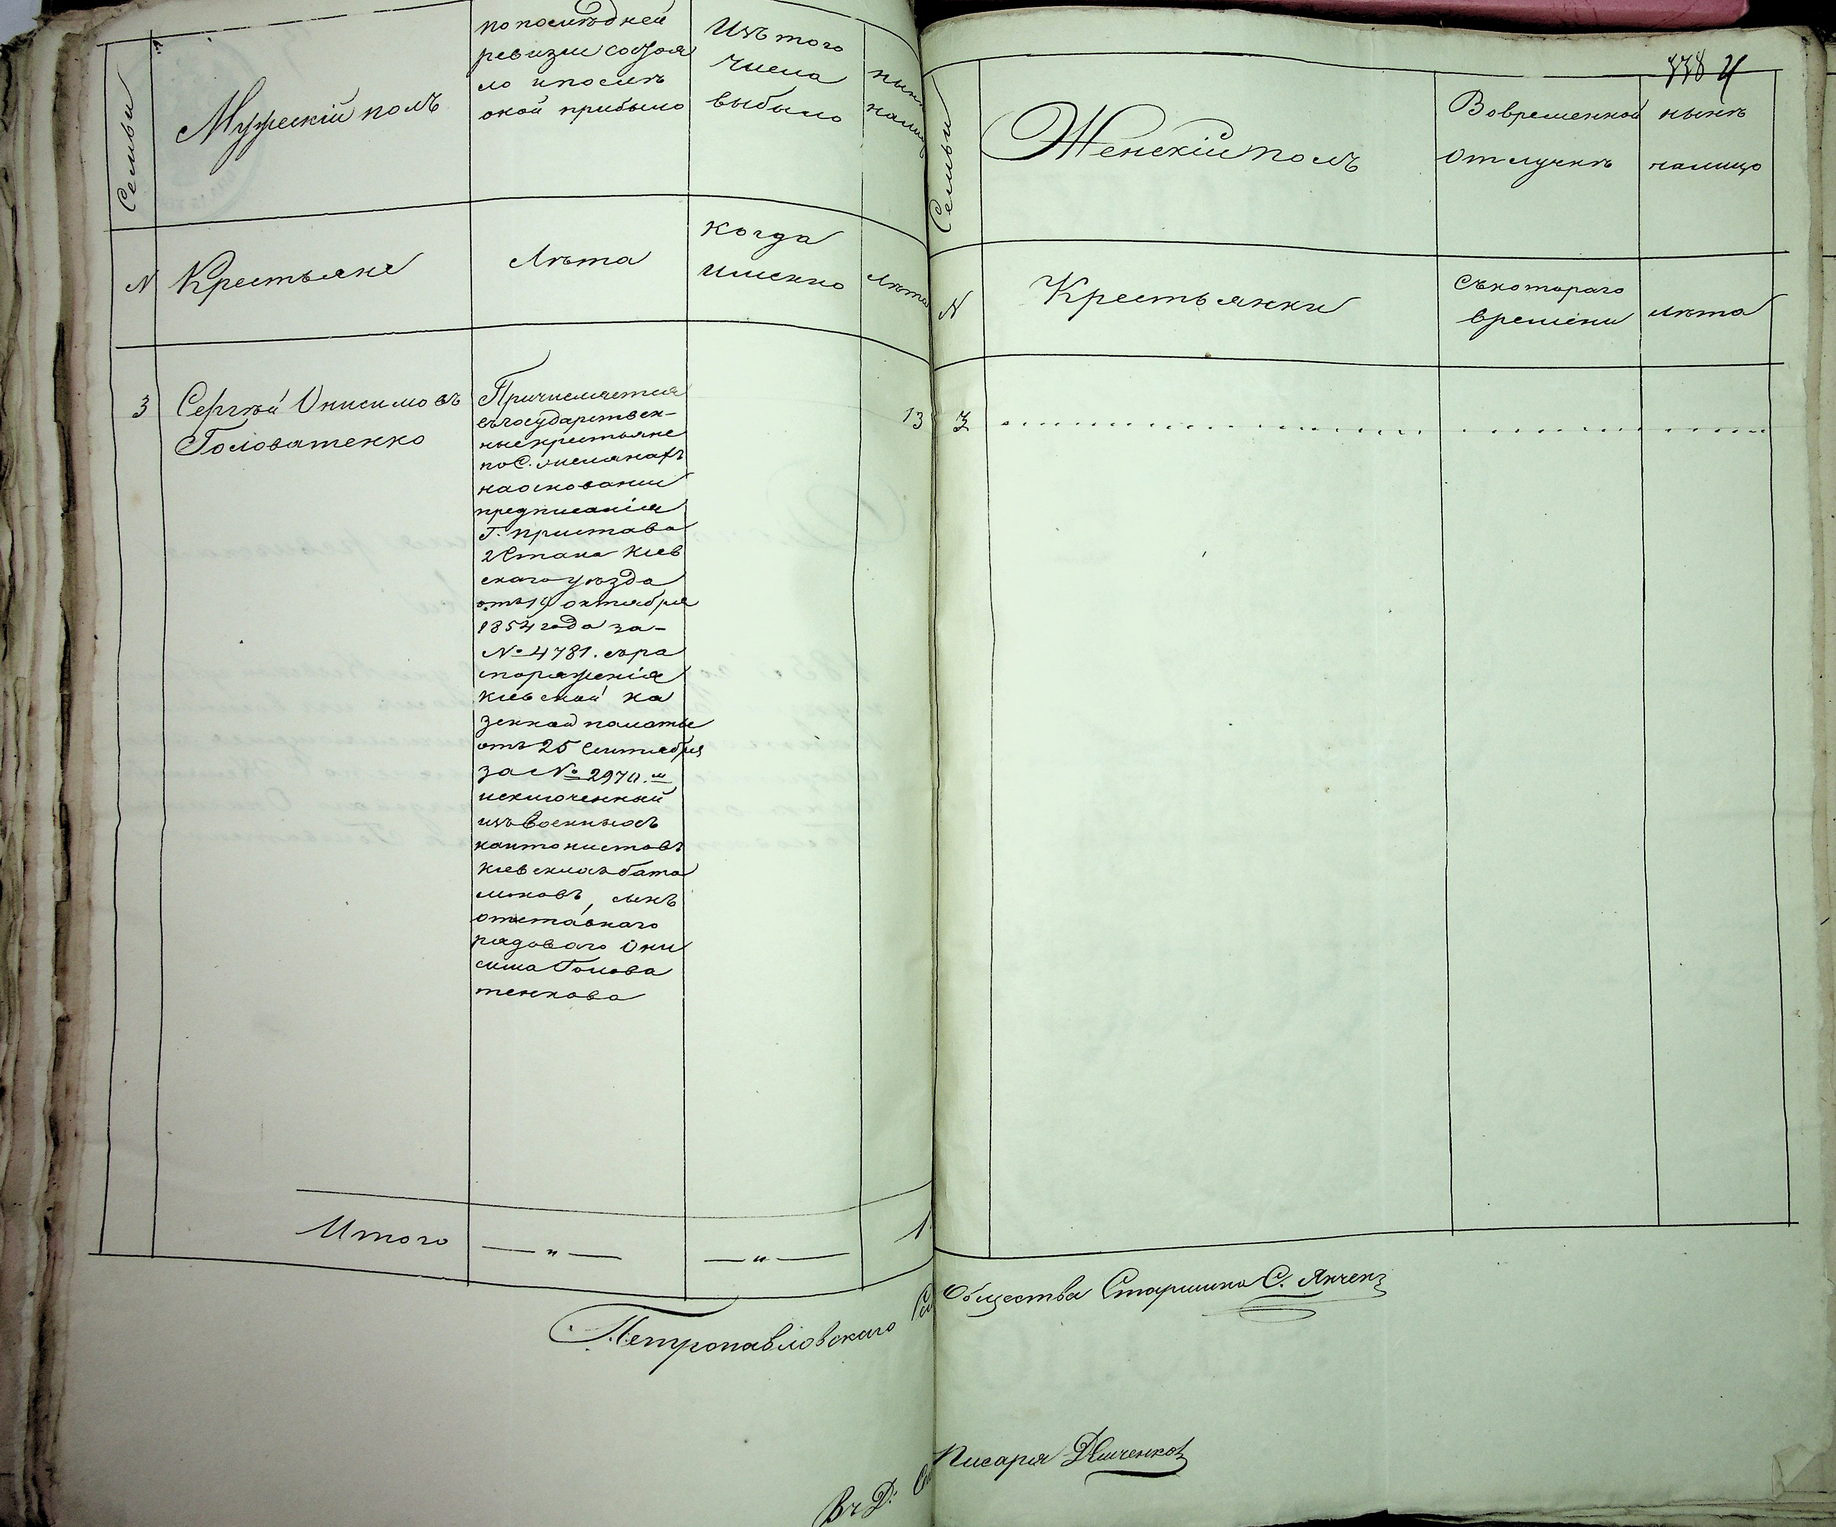 Семьи
Мужескій полъ
по послѣдней
ревизіи состоя
ло и послѣ
оной прибыло
Изъ того
числа
выбыло
нын
налиц
N
Крестьяне
Лѣта
когда
именно
Лѣта
3
Сергѣй Онисимовъ
Головатенко
Причисляется
въ государствен-
ные крестьяне
по С.
на основаніи
предписанія
Г. пристава
2 Стана Кіев
скаго уѣзда
отъ 19 октября
1854 года за-
№ 4781. съ ра
споряженія
Кіевской Ка
зенной палаты
отъ 25 Сентября
за № 2970.
исключенный
изъ военныхъ
кантонистовъ
Кіевскихъ бата
ліоновъ, сынъ
отставнаго
рядоваго Они
сима Голова
тенкова
13
Итого
— " —
— " —
1
Петропавловскаго
Въ Д:
338 4
Семьи
Женскій полъ
Во временной
отлучкѣ
нынѣ
налицо
N
Крестьянки
съ котораго
времени
лѣта
3
Общества Старшина С. Янченко
Писаря